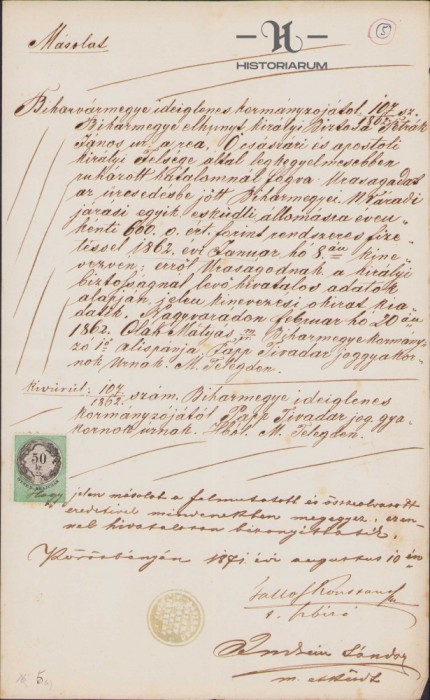 H
HISTORIARUM
5
Másolat
Biharvármegye ideiglenes kormányzójától 107 sz.
1862
Bihármegye elhunyt királyi Biztosa
János úr, a rea, Ő császári és apostoli
királyi Felsége által legkegyelmesebben
ruházott hatalomnál fogva Uraságodat
az üresedésbe jött Bihármegyei N.Váradi
járási egyik esküdti állomásra éven-
kénti 600. o. ért. forint rendszeres fize-
téssel 1862. évi Január hó 8.án kine-
vezvén; erről Uraságodnak a királyi
biztosságnál levő hivatalos adatok
alapján jelen kinevezési okirat kia-
datik. Nagyváradon február hó 20.án
1862. Oláh Mátyás Biharmegye kormány-
zó alispánja. Papp Tivadar joggyakor-
nok Urnak. M. Telegden.
Kivülről: 107/1862. szám. Biharmegye ideiglenes
kormányzójától Papp Tivadar jog gya-
kornok úrnak. M. Telegden.
50
Hogy jelen másolat a felmutatott és összeolvasott
eredetivel mindenekben megegyez, ezen-
nel hivatalosan bizonyittatik.
Körösbányán 1871. évi augustus 10.én
Sándor
m. esküdt
5